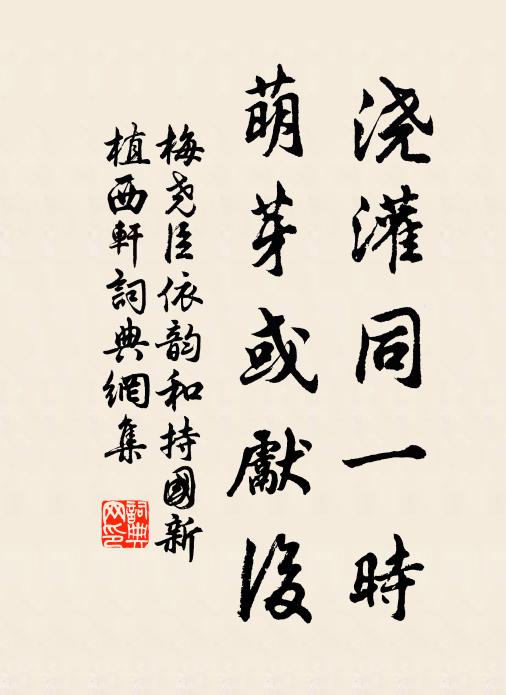 浇灌同一時
萌芽或獻後
梅尧臣依韵和持國新
植西軒詞典網集
詞典网印